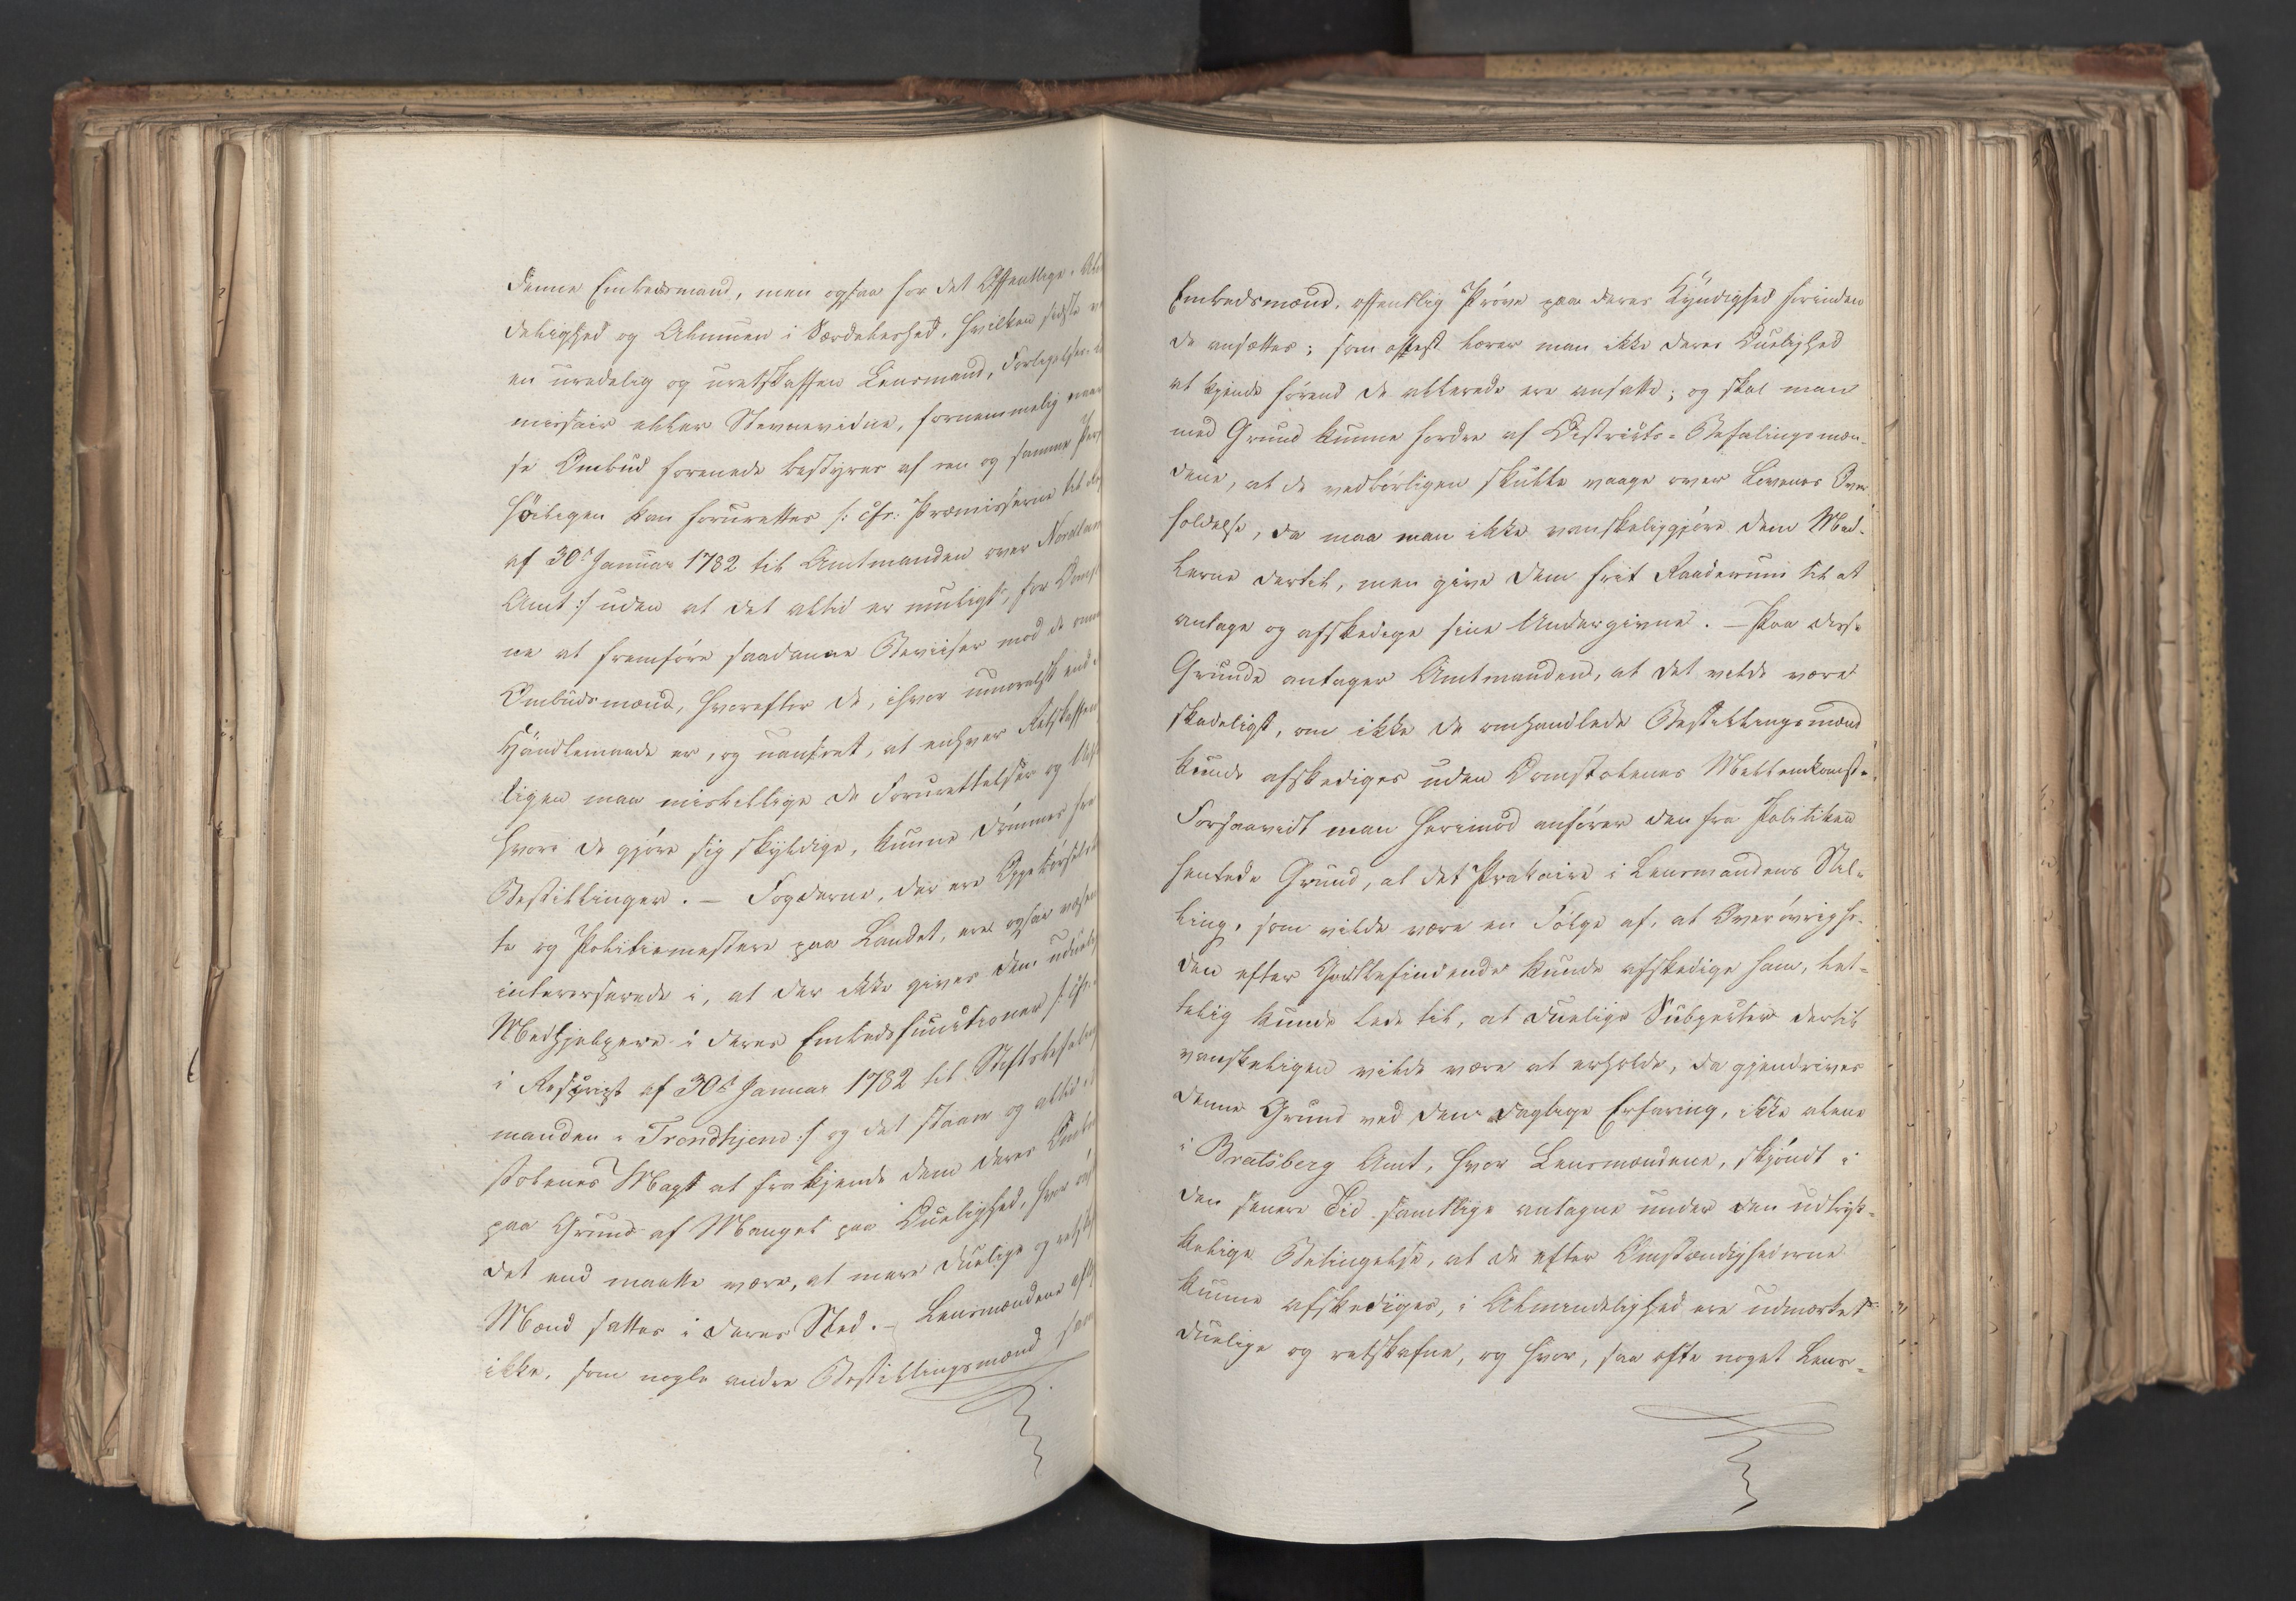 denne Embedsmand, men ogsaa for det Offentlige i Al-
delighed og Almuen i Særdeleshed, hvilken sidste ved
en uredelig og uretskaffen Lensmand, Forligelses-
missair eller Stevnevidne, fornemmelig naar
se Ombud forenede bestyres af een og samme Per-
höiligen kan forurettes /: cfr. Præmisserne til
af 30te Januar 1782 til Amtmanden over Nordlan
Amt :/ uden at det altid er muligt, for
ne at fremføre saadanne Beviiser mod de om
Ombudsmænd, hvorefter de, ihvor umoralsk end
Handlemaade er, og uanseet, at enhver Retskaffen
ligen maa misbillige de Forurettelser og
hvori de gjøre sig skyldige, kunne dømmes fra
Bestillinger. – Fogderne, der ere Oppebørsels
te og Politiemestere paa Landet, ere ogsaa væsen
interesserede i, at der ikke gives dem uduel
Medhjelpere i deres Embedsfunctioner /: cfr.
i Rescript af 30te Januar 1782 til Stiftsbefalings
manden i Trondhjem :/ og det staaer og altid i
stolenes Magt at frakjende dem deres Ombu
paa Grund af Mangel paa Duelighed, hvor
det end maatte være, at mere duelige og retsk
Mænd sattes i deres Sted. – Lensmændene aflæg
ikke, som nogle andre Bestillingsmænd som
Embedsmænd, offentlig Prøve paa deres Kyndighed forinden
de ansættes; som oftest lærer man ikke deres Duelighed
at kjende førend de allerede ere ansatte; og skal man
med Grund kunne fordre af Districts-Befalingsmæn-
dene, at de vedbørligen skulle vaage over Lovenes Over
holdelse, da maa man ikke vanskeliggjøre dem Mid-
lerne dertil, men give dem frit Raaderum til at
antage og afskedige sine Undergivne. – Paa disse
Grunde antager Amtmanden, at det vilde være
skadeligt, om ikke de omhandlede Bestillingsmænd
kunde afskediges uden Domstolenes Mellemkomst.
Forsaavidt man herimod anfører den fra Politiken
hentede Grund, at det Prekaire i Lensmandens Stil-
ling, som vilde være en Følge af, at Overøvrighe-
den efter Godtbefindende kunde afskedige ham, let-
telig kunde lede til, at duelige Subjecter dertil
vanskeligen vilde være at erholde, da gjendrives
denne Grund ved den daglige Erfaring, ikke alene
i Bratsberg Amt, hvor Lensmændene, skjøndt i
den senere Tid samtlige antagne under den udtryk-
kelige Betingelse, at de efter Omstændighederne
kunne afskediges, i Almindelighed ere udmærket
duelige og retskafne, og hvor, saa ofte noget Lens-